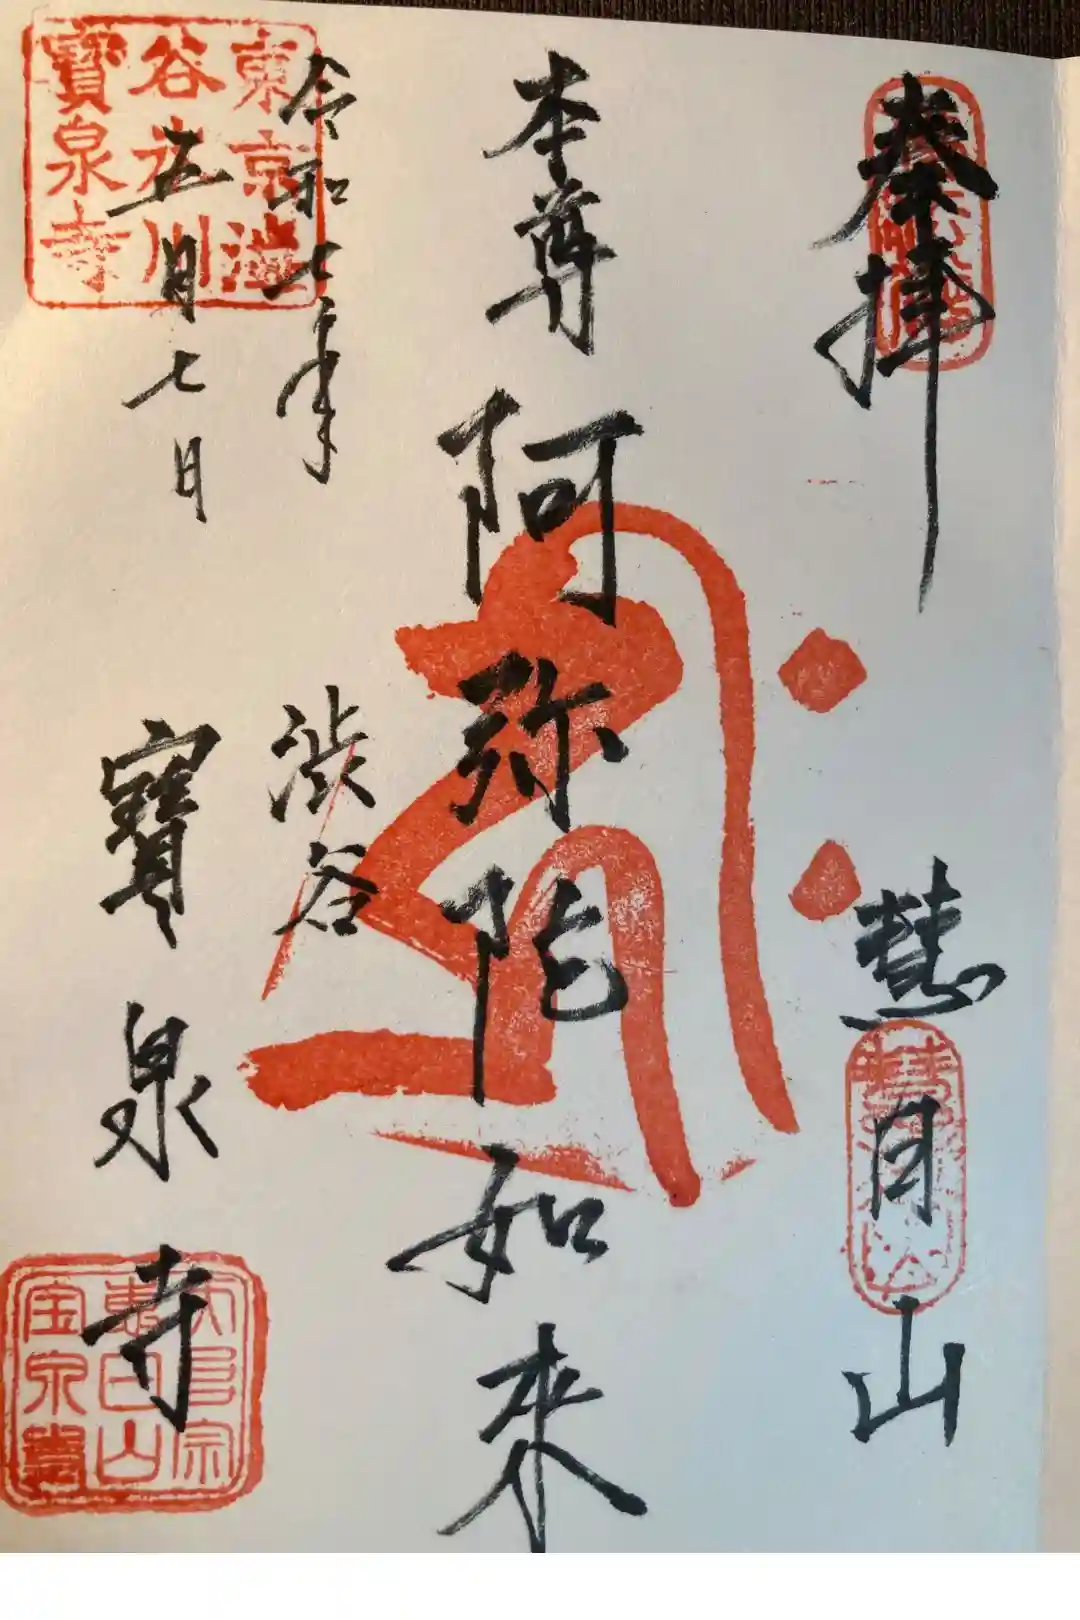 奉拝
慧日山
本尊 阿弥陀如来
令和七年
五月七日
渋谷
寶泉寺
東京澁
谷氷川
寶泉寺
恵日山
宝泉